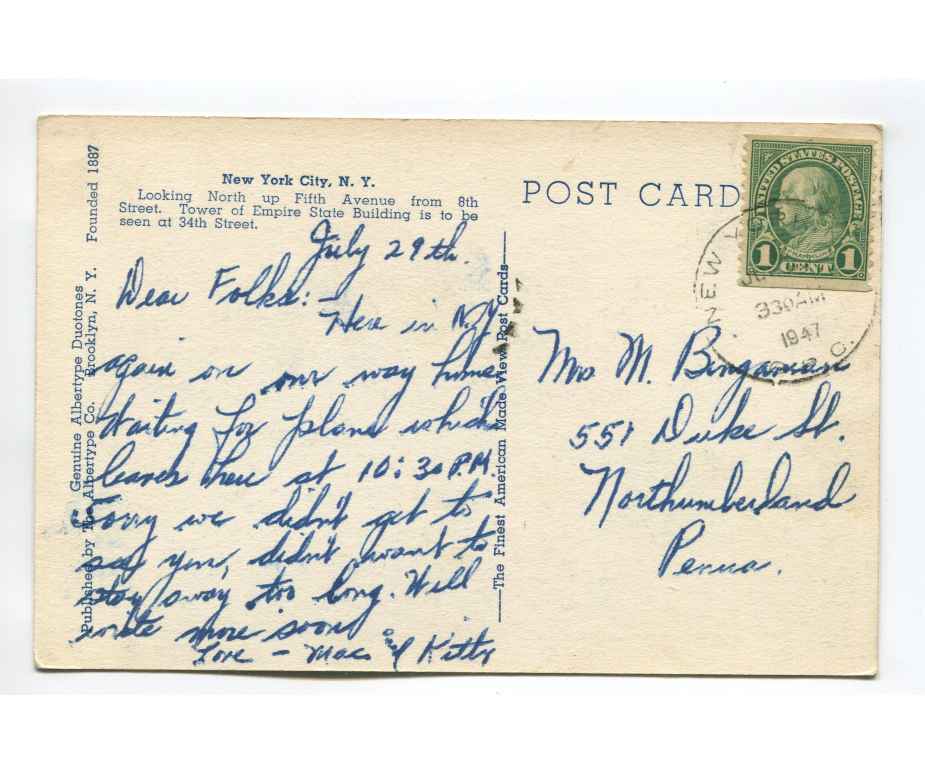 New York City, N. Y.
Looking North up Fifth Avenue from 8th
Street. Tower of Empire State Building is to be
seen at 34th Street.
July 29th.
Dear Folks: –
Here in NY
again on our way home.
Waiting for plane which
leaves here at 10:30 P.M.
Sorry we didn't get to
say you, didn't want to
stay away too long. Will
write more soon
Love – Mac and Kitty
Genuine Albertype Duotones Founded 1887
Published by The Albertype Co. Brooklyn, N. Y.
The Finest American Made View Post Cards
POST CARD
UNITED STATES POSTAGE
1 CENT 1
NEW Y
330AM
1947
Mrs M. Bingaman
551 Duke St.
Northumberland
Penna.